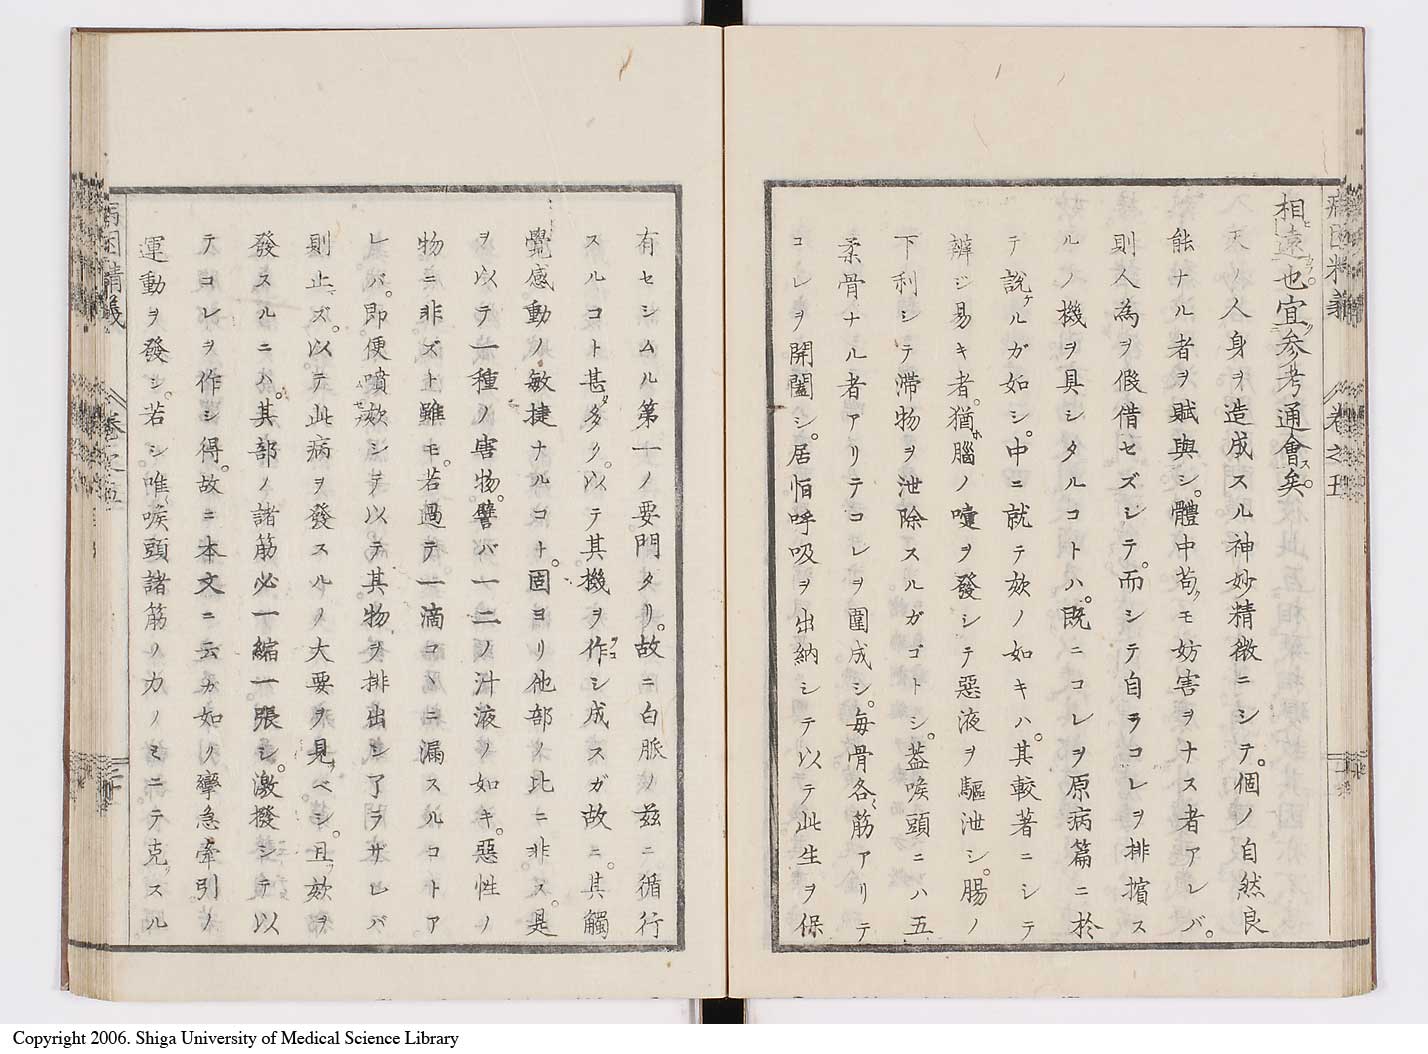 病因精義 巻之五
相遠也。宜参考通會ス矣。
天ノ人身ヲ造成スル神妙精微ニシテ。個ノ自然良
能ナル者ヲ賦與シ。體中苟モ妨害ヲナス者アレバ。
則人為ヲ假借セズシテ。而シテ自ヲコレヲ排擯ス
ルノ機ヲ具シタルコトハ。既ニコレヲ原病篇ニ於
テ説ケルガ如シ。中ニ就テ欬ノ如キハ。其較著ニシテ
辨ジ易キ者。猶腦ノ嚔ヲ發シテ惡液ヲ驅泄シ。腸ノ
下利シテ滯物ヲ泄除スルガゴトシ。葢喉頭ニハ五
柔骨ナル者アリテコレヲ圍成シ。毎骨各筋アリテ
コレヲ開闔シ。居恒呼吸ヲ出納シテ以テ此生ヲ保
有セシムル第一ノ要門タリ。故ニ白脈ノ茲ニ循行
スルコト甚多タリ。以テ其機ヲ作シ成スガ故ニ。其觸
覺感動ノ敏捷ナルコト。固ヨリ他部ノ比ニ非ス。是
ヲ以テ一種ノ害物。譬バ一二ノ汁液ノ如キ。惡性ノ
物ニ非ズト雖モ。若過テ一滴コヽニ漏スルコトア
レバ。即便噴欬シテ以テ其物ヲ排出シ了ヲザレバ
則止ズ。以テ此病ヲ發スルノ大要ヲ見ベシ。且欬ヲ
發スルニハ。其部ノ諸筋必一縮一張シ。激撥シテ以
テコレヲ作シ得。故ニ本文ニ云カ如ク攣急牽引ノ
運動ヲ發シ。若シ唯喉頭諸筋ノ力ノミニテ克スル
病因精義 巻之五
Copyright 2006. Shiga University of Medical Science Library